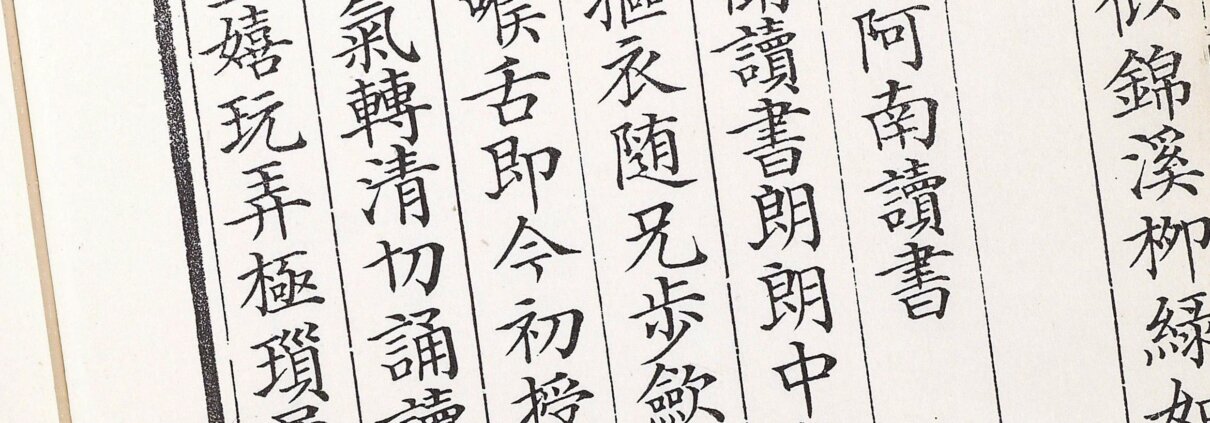 錦溪柳綠如
阿南讀書
讀書朗朗中
摳衣隨兄步歛
喉舌即今初授
氣轉清切誦讀
嬉玩弄極瑣